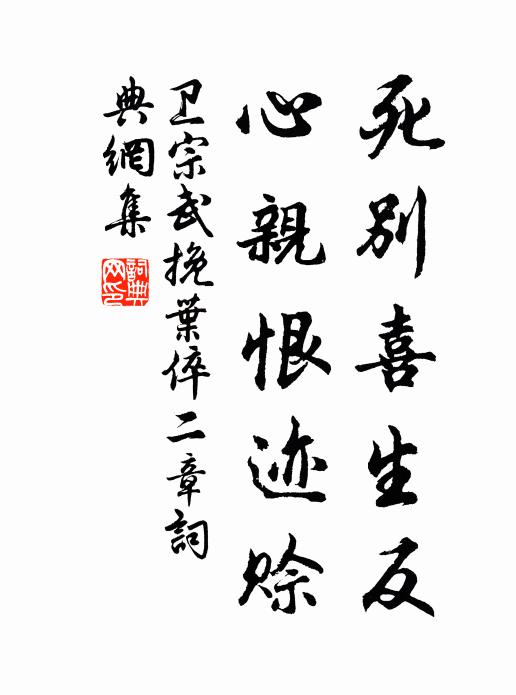 死别喜生反
心親恨迹赊
卫宗武挽葉倅二章詞
典網集
詞典网印